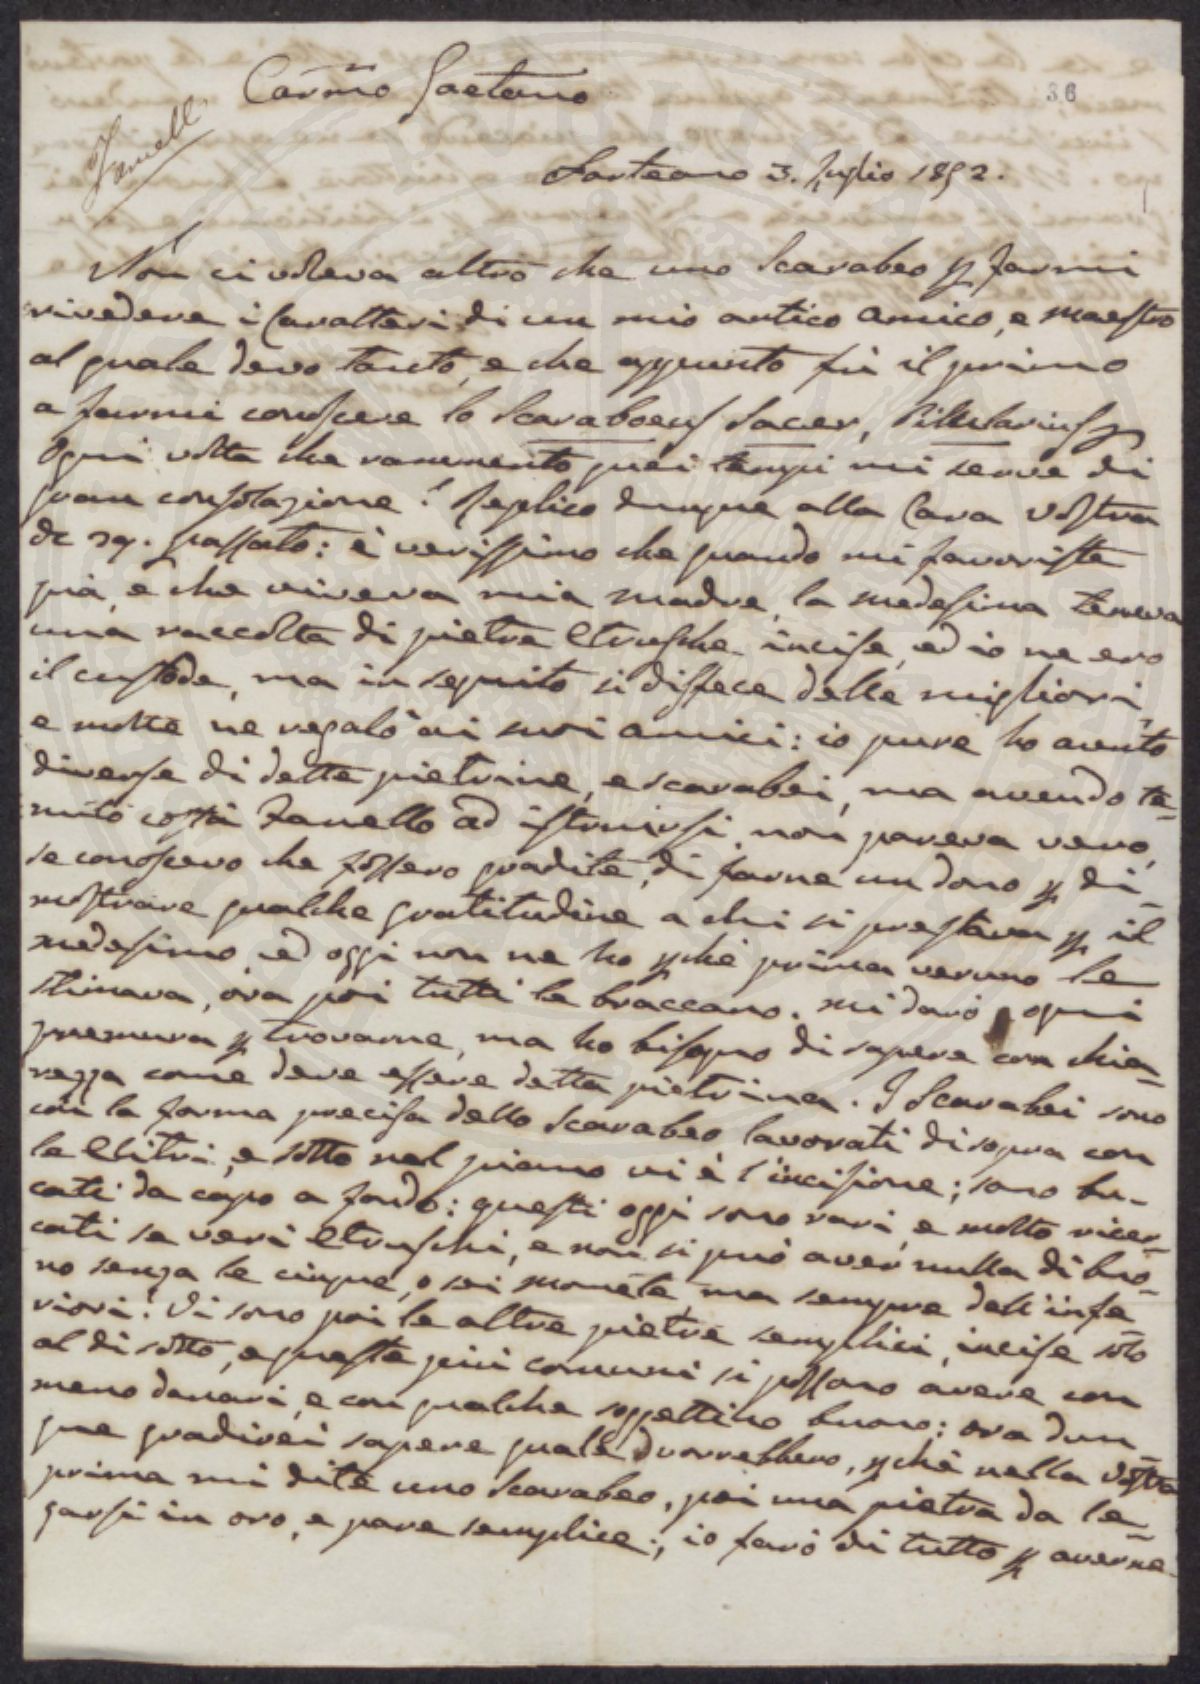 Carmo Gaetano
36
Fanelli
Sarteano 3. Luglio 1852.
Non ci voleva altro che uno Scarabeo p farmi
rivedere i Caratteri di un mio antico Amico, e Maestro
al quale devo tanto, e che appunto fù il primo
a farmi conoscere lo Scaraboeus Sacer, Pillularius
Ogni volta che rammento quei tempi mi serve di
gran consolazione! Replico dunque alla Cara vostra
de 29. passato: è verissimo che quando mi favoriste
quà, e che viveva mia Madre, la medesima teneva
una raccolta di pietre Etrusche incise, ed io ne ero
il custode, ma in seguito si disfece delle migliori,
e molte ne regalò ai suoi Amici: io pure ho avuto
diverse di dette pietrine, e scarabei, ma avendo te-
nuto costà Fanello ad istruirsi non pareva vero,
se conoscevo che fossero gradite, di farne un dono p di-
mostrare qualche gratitudine a chi si prestava p il
medesimo, ed oggi non ne ho pchè prima veruno le
stimava, ora poi tutti le braccano. Mi darò ogni
premura p trovarne, ma ho bisogno di sapere con chia-
rezza come deve essere detta pietrina. I Scarabei sono
con la forma precisa dello Scarabeo lavorati di sopra con
le Elitri, e sotto nel piano vi è l'incisione; sono bu-
cati da capo a fondo: questi oggi sono rari, e molto ricer-
cati se veri Etruschi, e non si può aver nulla di buo-
no senza le cinque, o sei monete ma sempre dell'infe
riori. Vi sono poi le altre pietre semplici, incise solo
al di sotto, e queste più comuni si possono avere con
meno danari, e con qualche soggettino buono: ora dun-
que gradirei sapere quale vorrebbero, pchè nella vostra
prima mi dite uno Scarabeo, poi una pietra da le-
garsi in oro, e pare semplice; io farò di tutto p averne